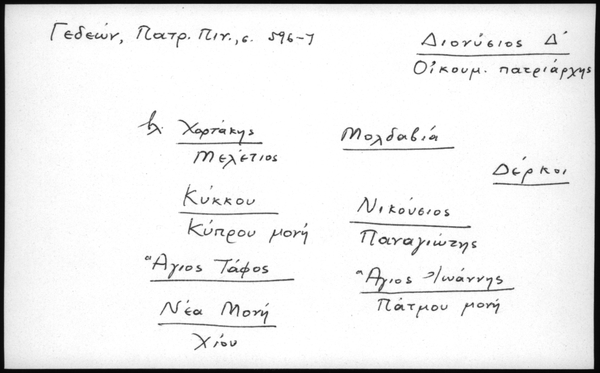 Γεδεών, Πατρ. Πιν., σ. 596-7
Διονύσιος Δ΄
Οἰκουμ. πατριάρχης
βλ. Χορτάκης
Μελέτιος
Μολδαβιά
Δέρκοι
Κύκκου
Κύπρου μονή
Νικούσιος
Παναγιώτης
Ἅγιος Τάφος
Ἅγιος Ἰωάννης
Πάτμου μονή
Νέα Μονή
Χίου